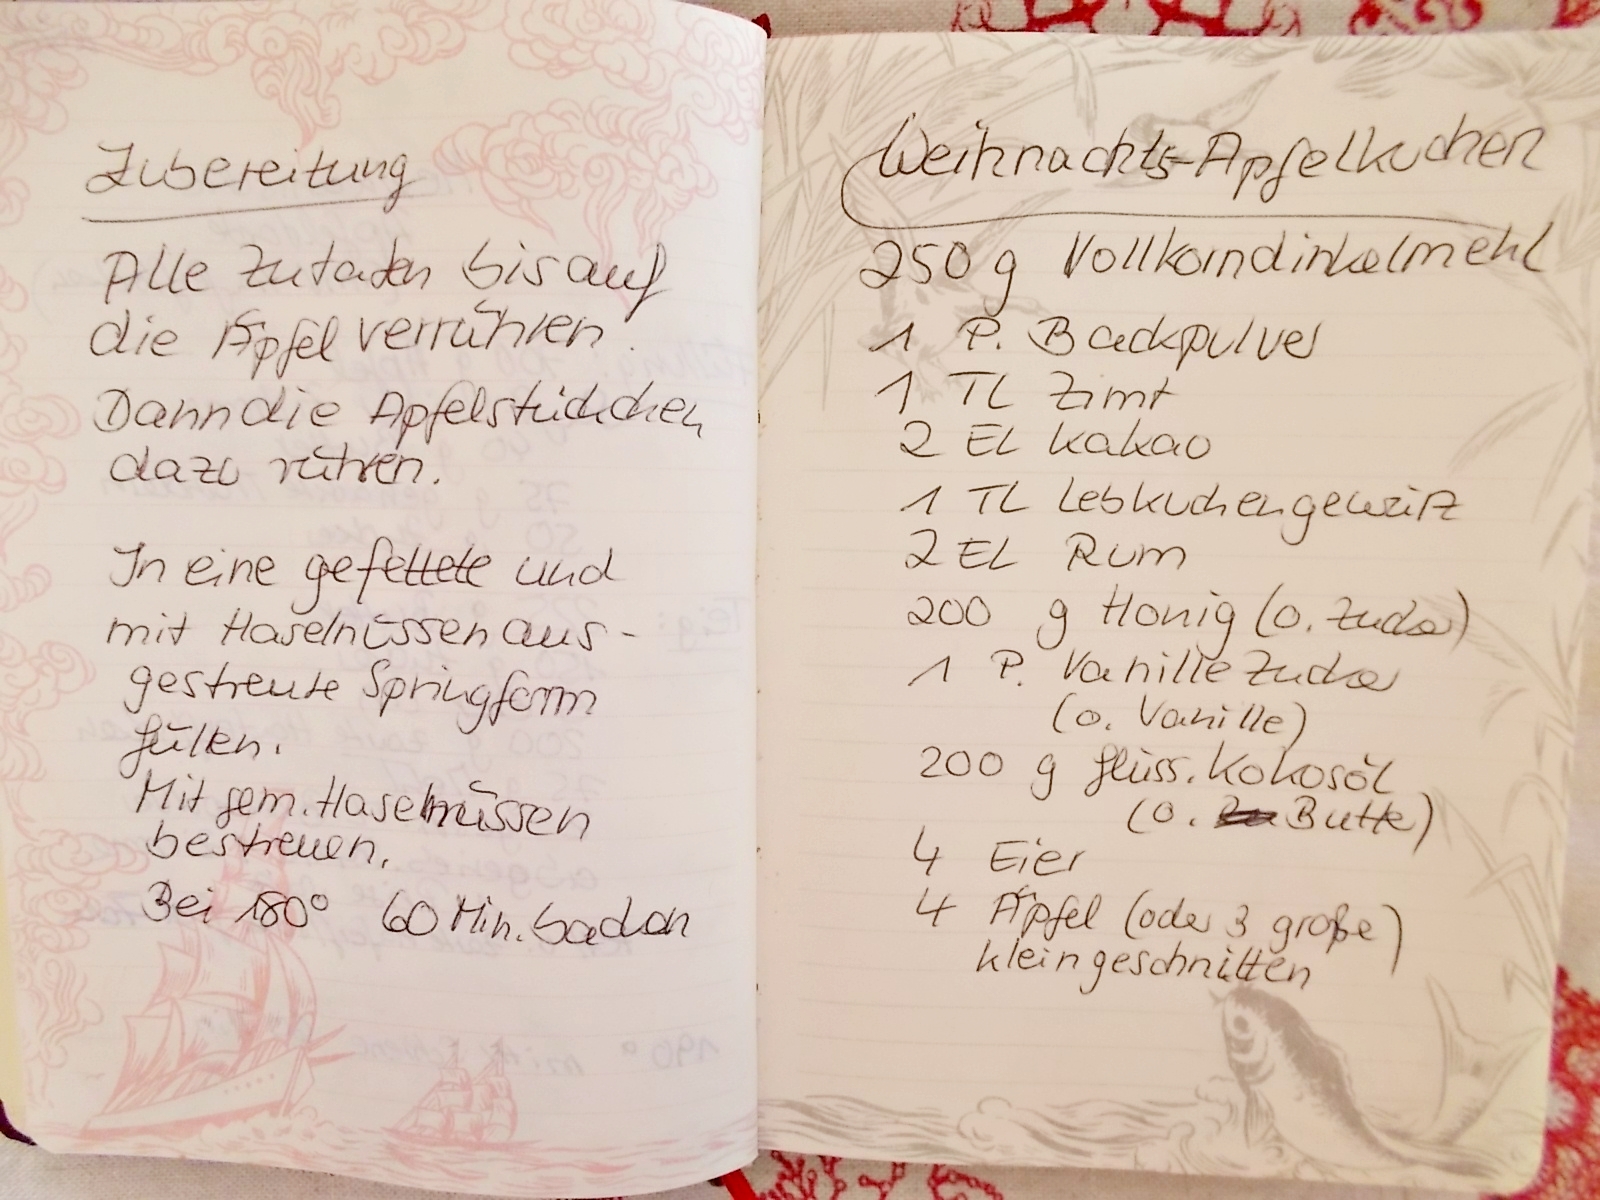 Zubereitung
Alle Zutaten bis auf
die Äpfel verrühren.
Dann die Apfelstückchen
dazu rühren.
In eine gefettete und
mit Haselnüssen aus-
gestreute Springform
füllen.
Mit gem. Haselnüssen
bestreuen.
Bei 180° 60 Min. backen
Weihnachts-Apfelkuchen
250 g Vollkorndinkelmehl
1 P. Backpulver
1 TL Zimt
2 EL Kakao
1 TL Lebkuchengewürz
2 EL Rum
200 g Honig (o. Zucker)
1 P. Vanillezucker
(o. Vanille)
200 g flüss. Kokosöl
(o. Butter)
4 Eier
4 Äpfel (oder 3 große)
kleingeschnitten